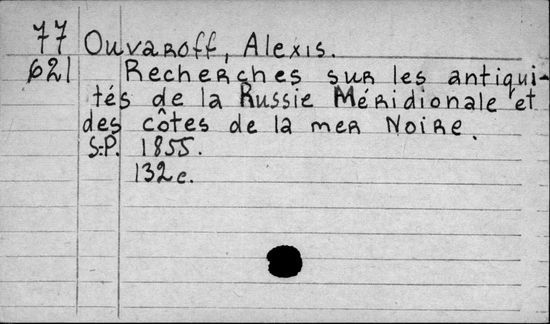 77 Ouvaroff, Alexis.
621 Recherches sur les antiqui-
tés de la Russie Méridionale et
des côtes de la mer Noire.
S.-P. 1855.
132 c.